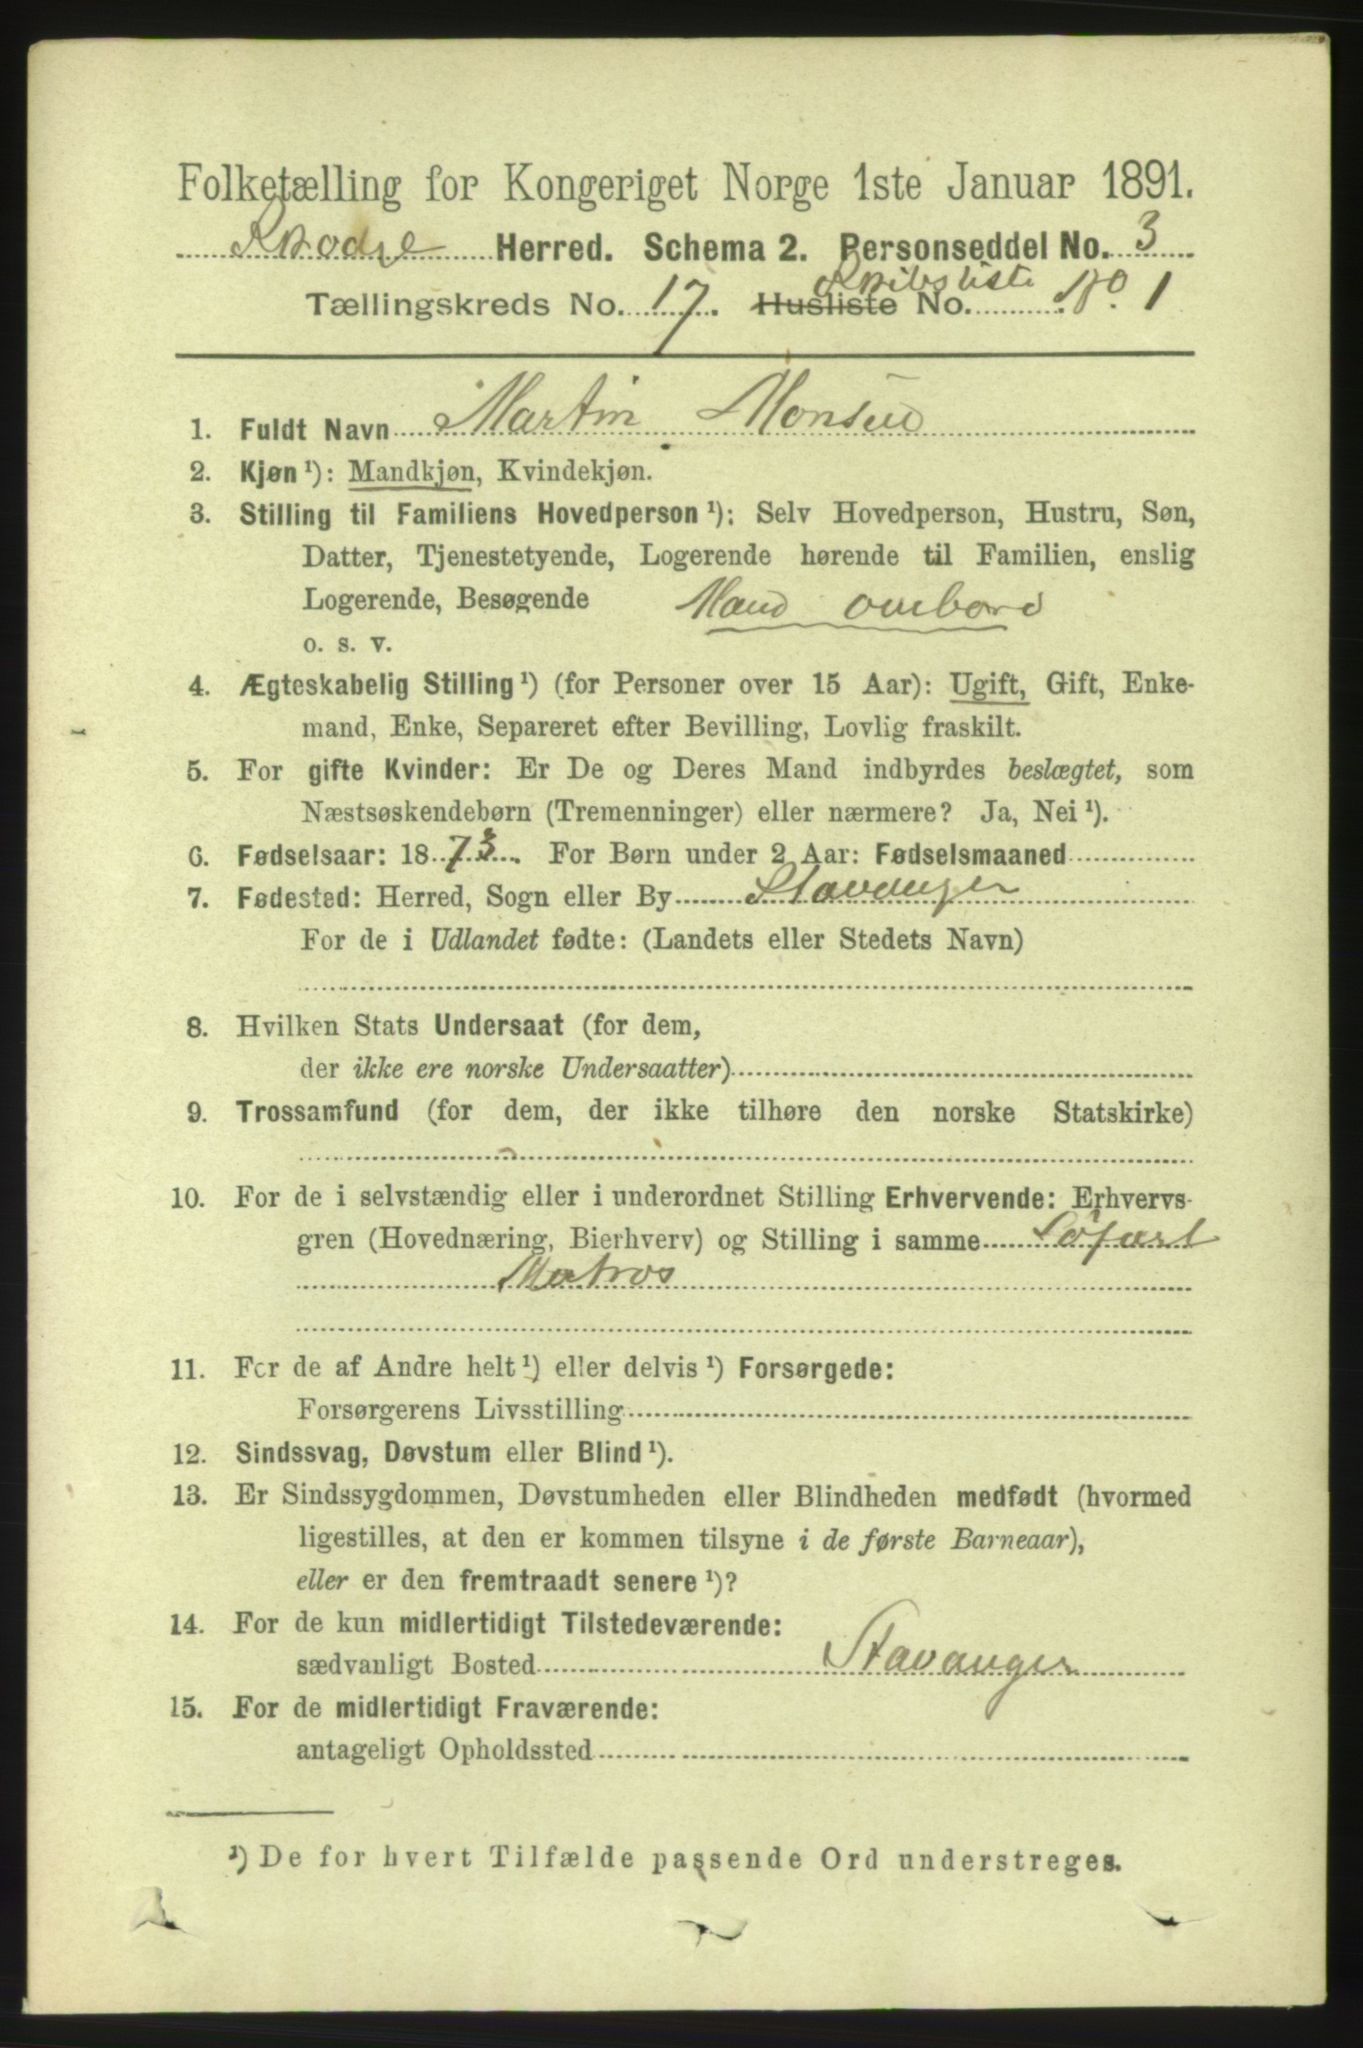 Folketælling for Kongeriget Norge 1ste Januar 1891.
Herred. Schema 2. Personseddel No. 3
Tællingskreds No. 17. Husliste No. Skibsliste No. 1
1. Fuldt Navn Martin Monsen
2. Kjøn ¹): Mandkjøn, Kvindekjøn.
3. Stilling til Familiens Hovedperson ¹): Selv Hovedperson, Hustru, Søn,
Datter, Tjenestetyende, Logerende hørende til Familien, enslig
Logerende, Besøgende Mand ombord
o. s. v.
4. Ægteskabelig Stilling ¹) (for Personer over 15 Aar): Ugift, Gift, Enke-
mand, Enke, Separeret efter Bevilling, Lovlig fraskilt.
5. For gifte Kvinder: Er De og Deres Mand indbyrdes beslægtet, som
Næstsøskendebørn (Tremenninger) eller nærmere? Ja, Nei ¹).
6. Fødselsaar: 1873. For Børn under 2 Aar: Fødselsmaaned
7. Fødested: Herred, Sogn eller By Stavanger
For de i Udlandet fødte: (Landets eller Stedets Navn)
8. Hvilken Stats Undersaat (for dem,
der ikke ere norske Undersaatter)
9. Trossamfund (for dem, der ikke tilhøre den norske Statskirke)
10. For de i selvstændig eller i underordnet Stilling Erhvervende: Erhvervs-
gren (Hovednæring, Bierhverv) og Stilling i samme Söfart
Matros
11. For de af Andre helt ¹) eller delvis ¹) Forsørgede:
Forsørgerens Livsstilling
12. Sindssvag, Døvstum eller Blind ¹).
13. Er Sindssygdommen, Døvstumheden eller Blindheden medfødt (hvormed
ligestilles, at den er kommen tilsyne i de første Barneaar),
eller er den fremtraadt senere ¹)?
14. For de kun midlertidigt Tilstedeværende:
sædvanligt Bosted Stavanger
15. For de midlertidigt Fraværende:
antageligt Opholdssted
¹) De for hvert Tilfælde passende Ord understreges.